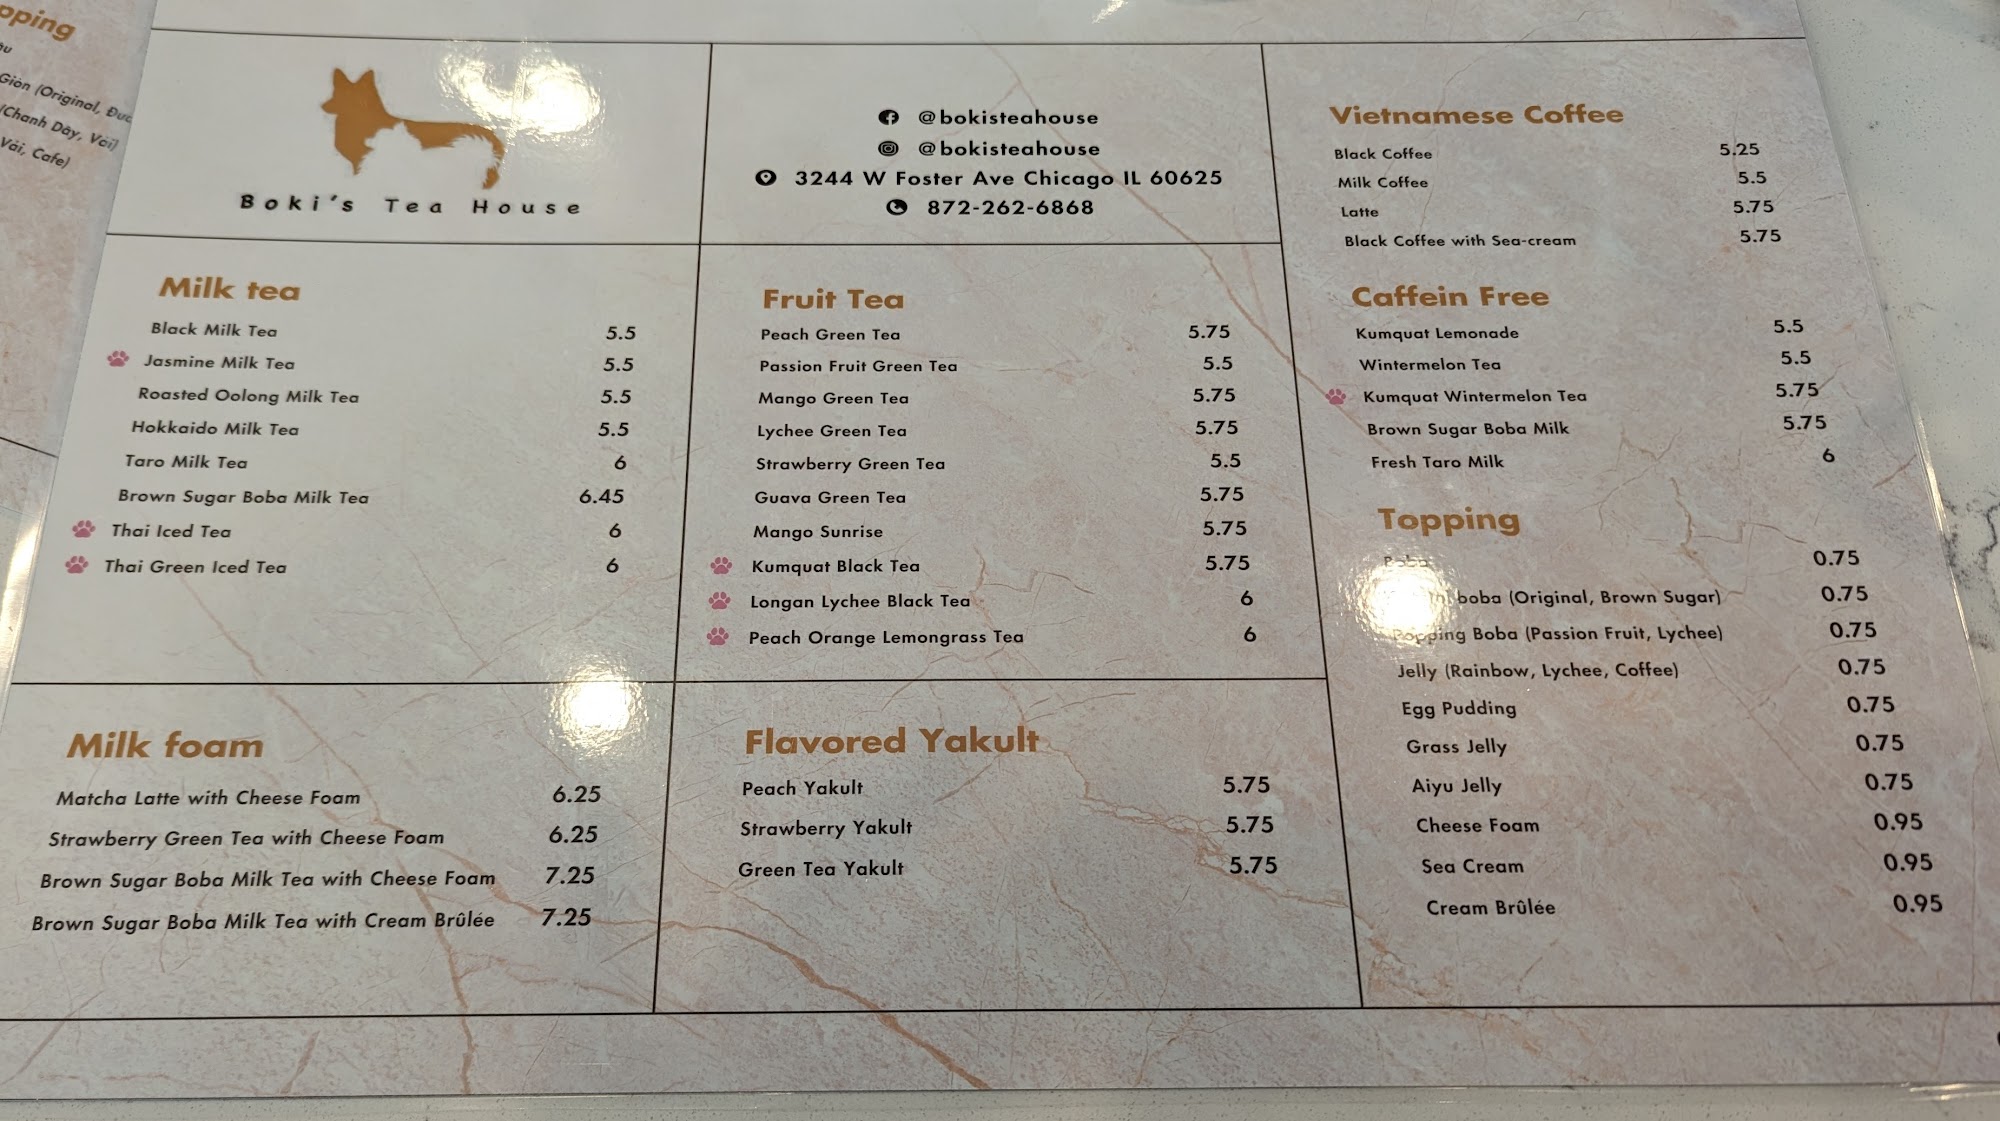 pping
Giòn (Original, Đuc
(Chanh Dây, Vải)
Vải, Cafe)
Boki's Tea House
@bokisteahouse
@bokisteahouse
3244 W Foster Ave Chicago IL 60625
872-262-6868
Milk tea
Black Milk Tea 5.5
Jasmine Milk Tea 5.5
Roasted Oolong Milk Tea 5.5
Hokkaido Milk Tea 5.5
Taro Milk Tea 6
Brown Sugar Boba Milk Tea 6.45
Thai Iced Tea 6
Thai Green Iced Tea 6
Milk foam
Matcha Latte with Cheese Foam 6.25
Strawberry Green Tea with Cheese Foam 6.25
Brown Sugar Boba Milk Tea with Cheese Foam 7.25
Brown Sugar Boba Milk Tea with Cream Brûlée 7.25
Fruit Tea
Peach Green Tea 5.75
Passion Fruit Green Tea 5.5
Mango Green Tea 5.75
Lychee Green Tea 5.75
Strawberry Green Tea 5.5
Guava Green Tea 5.75
Mango Sunrise 5.75
Kumquat Black Tea 5.75
Longan Lychee Black Tea 6
Peach Orange Lemongrass Tea 6
Flavored Yakult
Peach Yakult 5.75
Strawberry Yakult 5.75
Green Tea Yakult 5.75
Vietnamese Coffee
Black Coffee 5.25
Milk Coffee 5.5
Latte 5.75
Black Coffee with Sea-cream 5.75
Caffein Free
Kumquat Lemonade 5.5
Wintermelon Tea 5.5
Kumquat Wintermelon Tea 5.75
Brown Sugar Boba Milk 5.75
Fresh Taro Milk 6
Topping
Boba 0.75
boba (Original, Brown Sugar) 0.75
Popping Boba (Passion Fruit, Lychee) 0.75
Jelly (Rainbow, Lychee, Coffee) 0.75
Egg Pudding 0.75
Grass Jelly 0.75
Aiyu Jelly 0.75
Cheese Foam 0.95
Sea Cream 0.95
Cream Brûlée 0.95